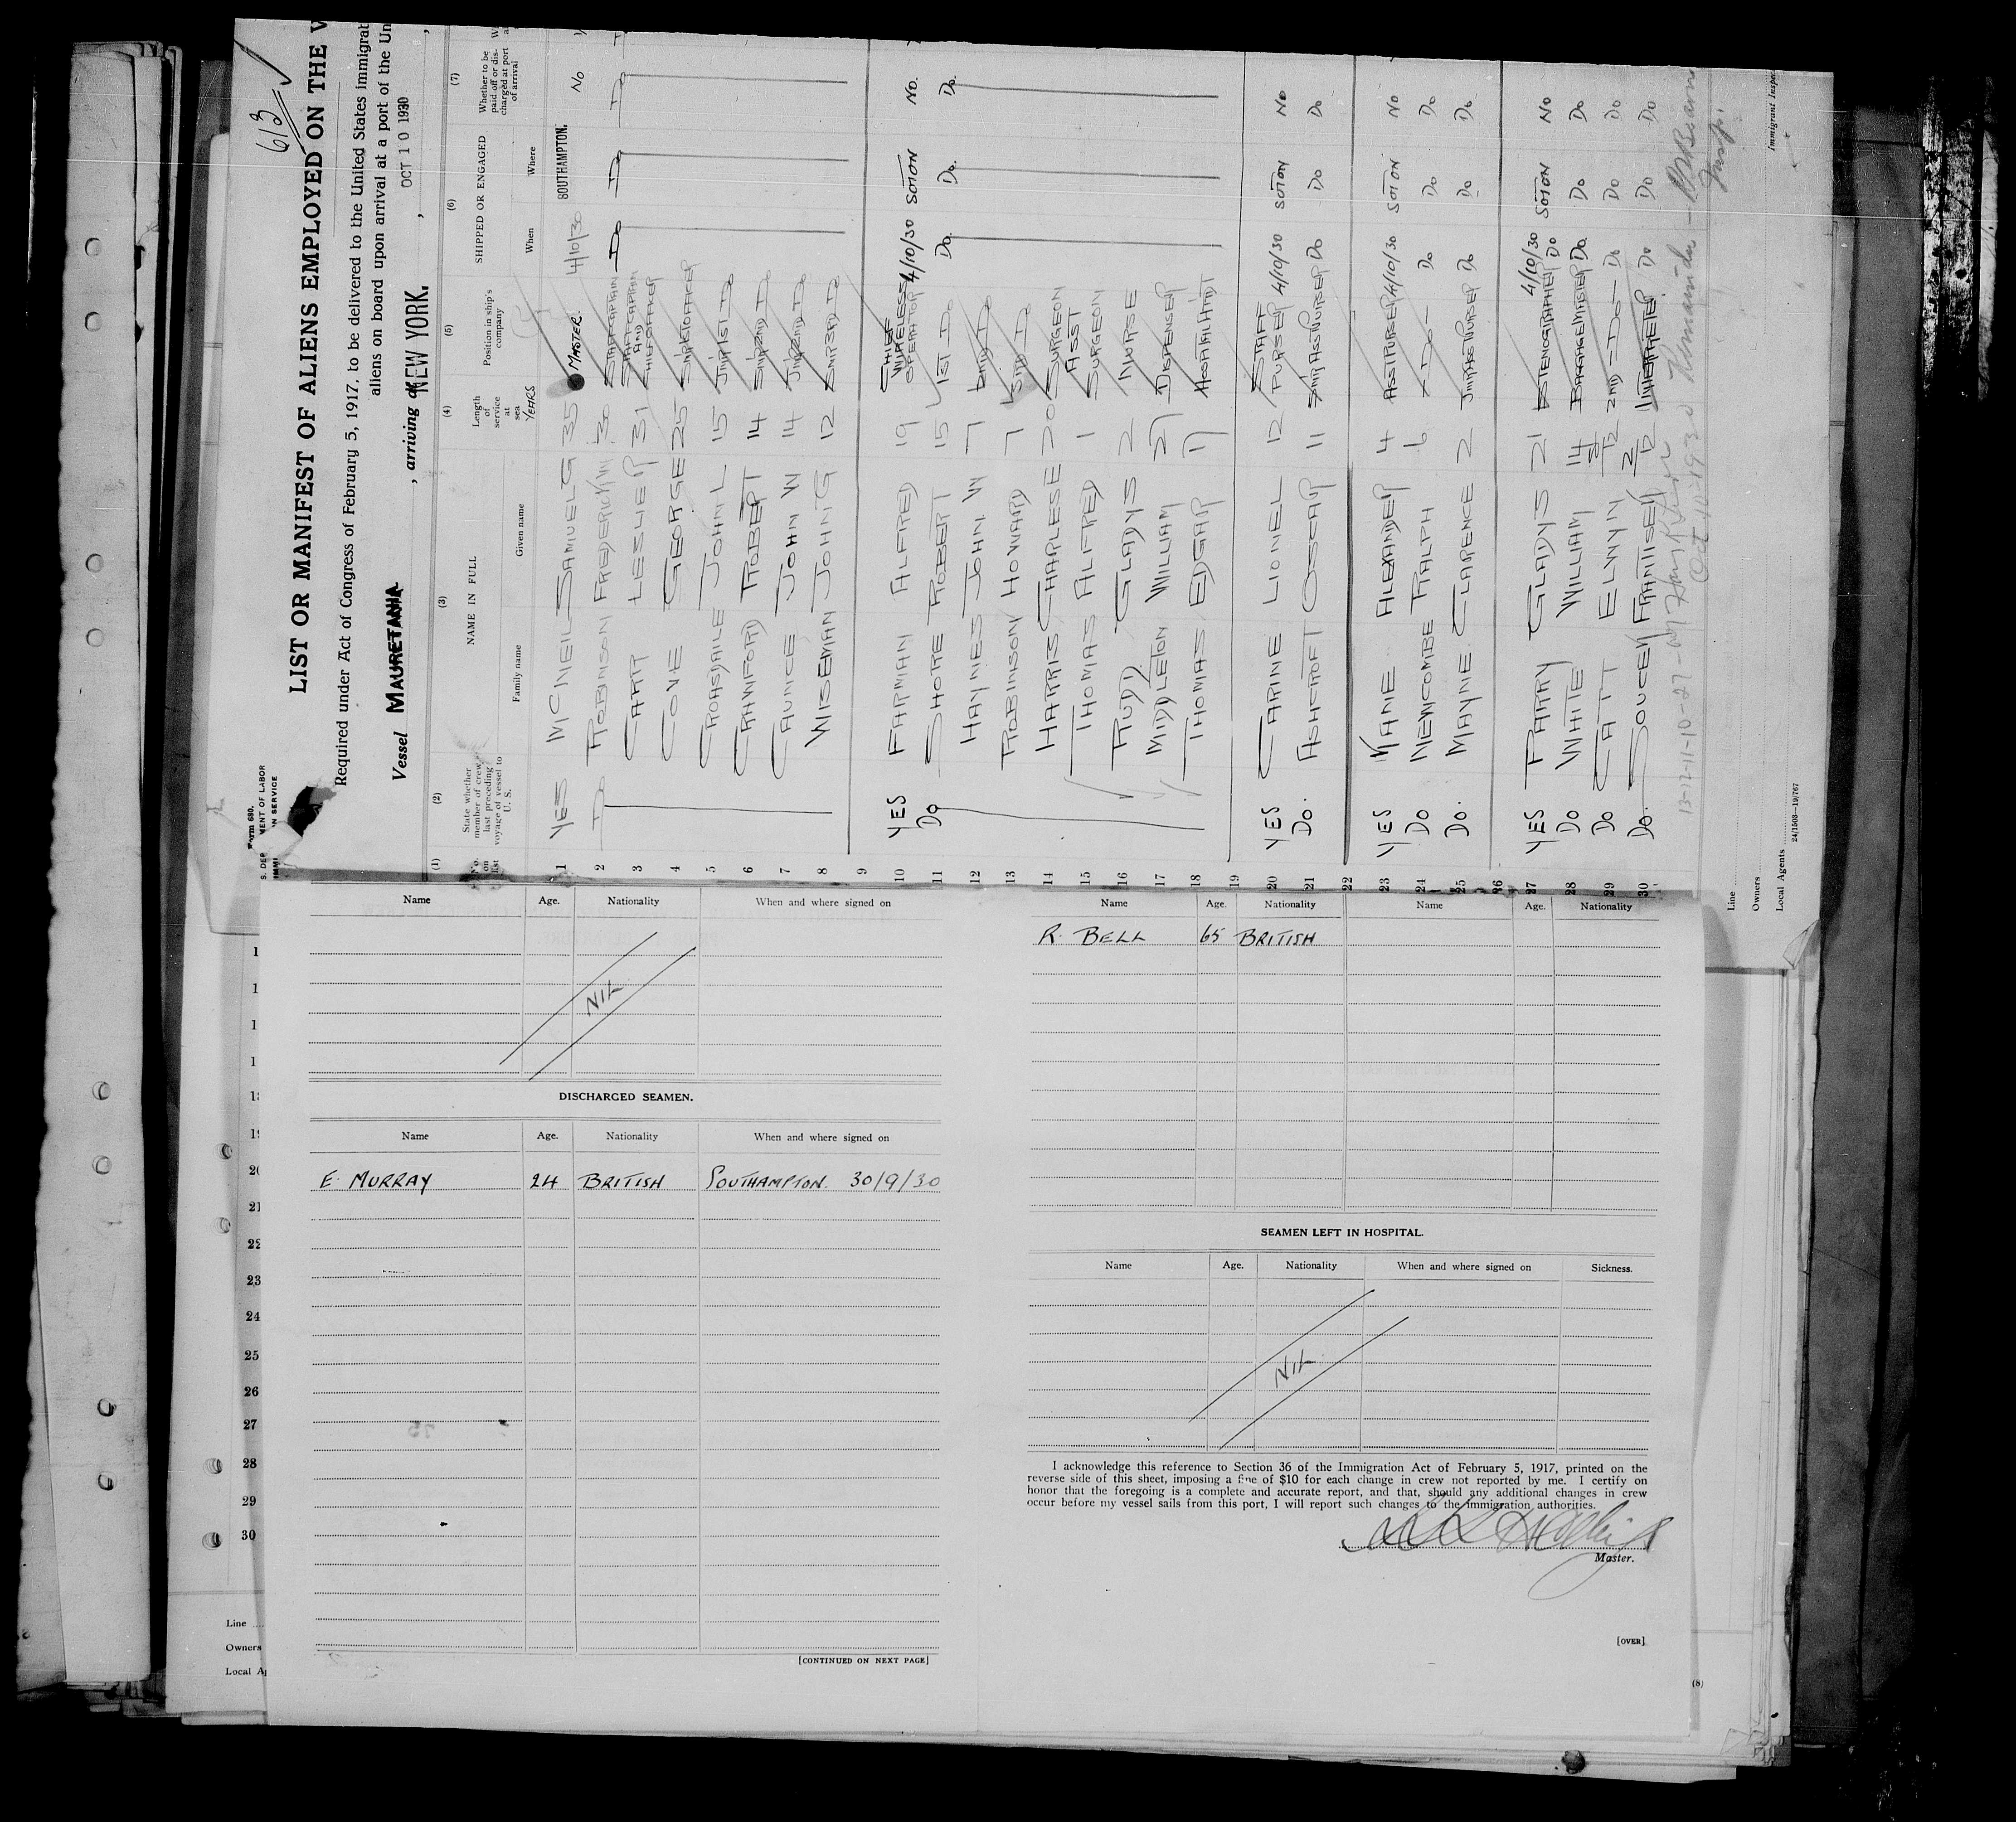 613
LIST OR MANIFEST OF ALIENS EMPLOYED ON THE V
Required under Act of Congress of February 5, 1917, to be delivered to the United States immigrat
aliens on board upon arrival at a port of the Un
Vessel MAURETANIA , arriving at NEW YORK. , OCT 10 1930 ,
Form 680.
S. DEP MENT OF LABOR
IMMI N SERVICE
(1) (2) (3) (4) (5) (6) (7)
No. on list
State whether member of crew last preceding voyage of vessel to U. S.
NAME IN FULL
Family name Given name
Length of service at sea YEARS
Position in ship's company
SHIPPED OR ENGAGED
When Where
Whether to be paid off or discharged at port of arrival
1 YES MCNEIL SAMUEL G 35 MASTER. 4/10/30 SOUTHAMPTON. No
2 Do ROBINSON FREDERICK 30 STAFF CAPTAIN Do Do Do
3 CARR LESLIE R 31 STAFF CAPTAIN AND CHIEF OFFICER
4 COVE GEORGE 25 SNR 1ST OFFICER
5 CROASDAILE JOHN L 15 JNR 1ST Do
6 CRAWFORD ROBERT 14 SNR 2ND Do
7 CAUNCE JOHN W 14 JNR 2ND Do
8 WISEMAN JOHN G 12 SNR 3RD Do
9
10 YES FARMAN ALFRED 19 CHIEF WIRELESS OPERATOR 4/10/30 SOTON No.
11 Do SHORE ROBERT 15 1ST Do Do. Do. Do.
12 HAYNES JOHN W 7 2ND Do
13 ROBINSON HOWARD 7 3RD Do
14 HARRIS CHARLES E 20 SURGEON
15 THOMAS ALFRED 1 ASST SURGEON
16 RUDD GLADYS 2 NURSE
17 MIDDLETON WILLIAM 27 DISPENSER
18 THOMAS EDGAR 17 HOSPITAL ATTDT
19
20 YES CARINE LIONEL 12 STAFF PURSER 4/10/30 SOTON No
21 Do. ASHCROFT OSCAR 11 SNR ASST PURSER Do Do Do
22
23 YES KANE ALEXANDER 4 ASST PURSER 4/10/30 SOTON No
24 Do NEWCOMBE RALPH 6 - Do - Do Do Do
25 Do. MAYNE CLARENCE 2 JNR ASST PURSER Do Do Do.
26
27 YES PARRY GLADYS 21 STENOGRAPHER 4/10/30 Do SOTON No
28 Do WHITE WILLIAM 14 BAGGAGE MASTER Do. Do Do
29 Do CATT ELWYN 5/12 2ND - Do - Do Do Do
30 Do. SOUCEK FRANTISEK 2/12 INTERPRETER Do Do Do
Oct 10 1930
Immigrant Inspec
Line
Owners
Local Agents
24/1503—19/767
Name Age. Nationality When and where signed on
NIL
DISCHARGED SEAMEN.
Name Age. Nationality When and where signed on
E. MURRAY 24 BRITISH SOUTHAMPTON 30/9/30
[CONTINUED ON NEXT PAGE]
Name Age. Nationality Name Age. Nationality
R. BELL 65 BRITISH
SEAMEN LEFT IN HOSPITAL.
Name Age. Nationality When and where signed on Sickness.
NIL
I acknowledge this reference to Section 36 of the Immigration Act of February 5, 1917, printed on the
reverse side of this sheet, imposing a fine of $10 for each change in crew not reported by me. I certify on
honor that the foregoing is a complete and accurate report, and that, should any additional changes in crew
occur before my vessel sails from this port, I will report such changes to the immigration authorities.
Master.
[OVER]
(8)
19
20
21
22
23
24
25
26
27
28
29
30
Line
Owners
Local Ag